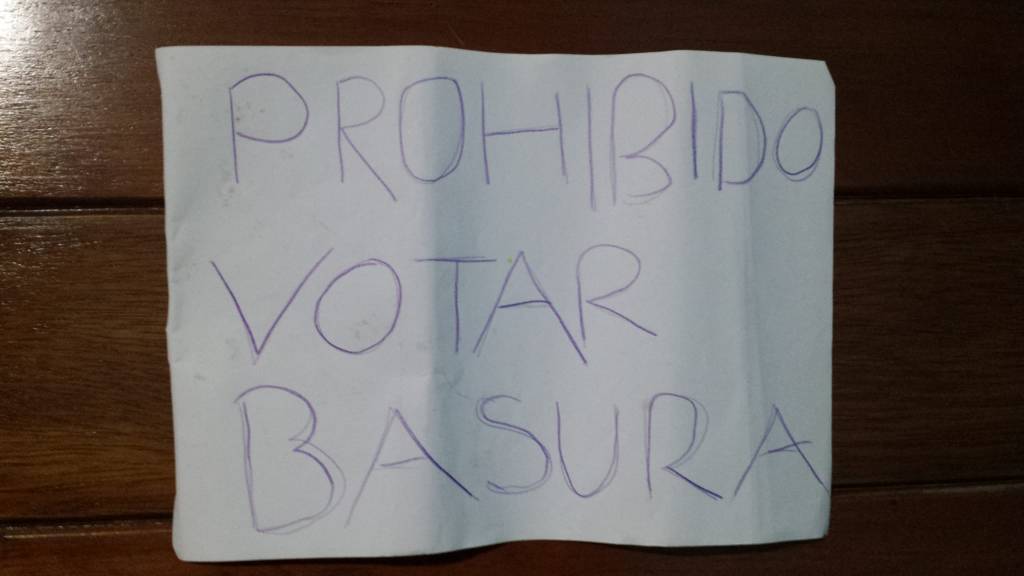 PROHIBIDO
VOTAR
BASURA